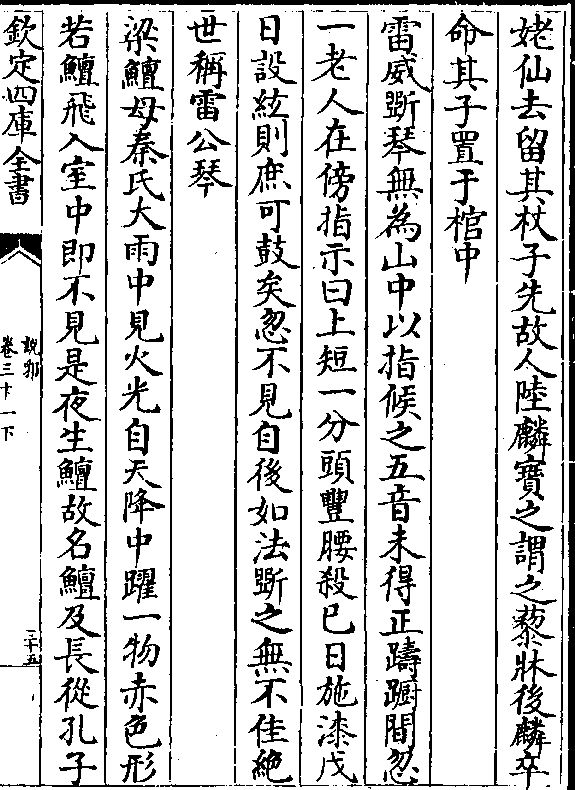 姥仙去留其杖子先故人陸麟寶之謂之藜牀後麟卒
命其子置于棺中
雷威斲琴無為山中以指候之五音未得正躊躕間忽
一老人在傍指示曰上短一分頭豐腰殺巳日施漆戊
日設絃則庶可鼓矣忽不見自後如法斲之無不佳絶
世稱雷公琴
梁鱣母秦氏大雨中見火光自天降中躍一物赤色形
若鱣飛入室中即不見是夜生鱣故名鱣及長從孔子
欽定四庫全書
說郛
卷三十一下
三十五